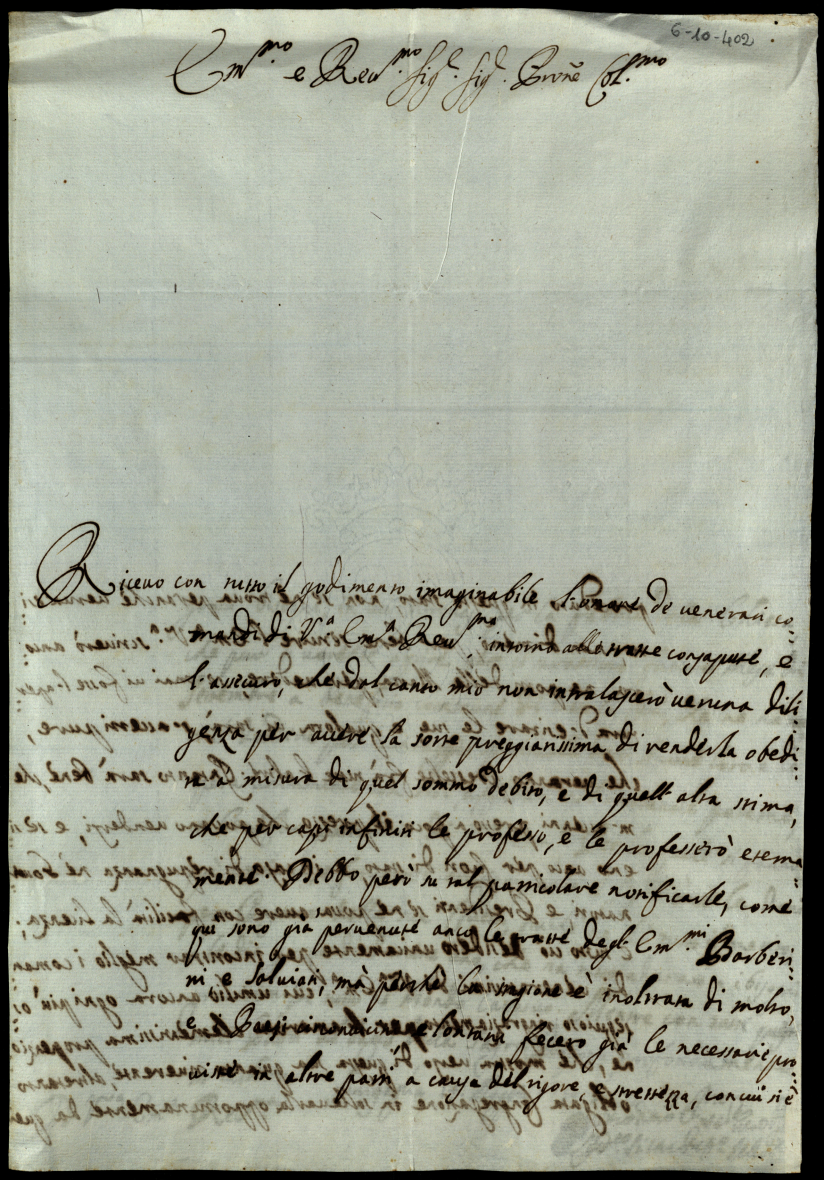 6-10-402
Em.mo e Reu.mo Sig.r Sig.r Prõne Col.mo
Riceuo con tutto il godimento imaginabile l'onore de venerati co-
mandi di V.a Em.a Reu.ma intorno alle tratte consapute, e
l'assecuro, che dal canto mio non intralascerò veruna dili-
genza per auere la sorte preggiatissima di renderla obedi-
ta a misura di quel sommo debito, e di quell'alta stima,
che per capi infiniti le professo, e le professerò eterna-
mente. Debbo però su tal particolare notificarle, come
qui sono già peruenute anco le tratte degl'Em.mi Barberi-
ni e Saluiati, mà perche la stagione è inoltrata di molto,
e Paesi circonuicini e lontani fecero già le necessarie pro-
uiste in altre parti a causa del rigore, e strettezza, con cui si è